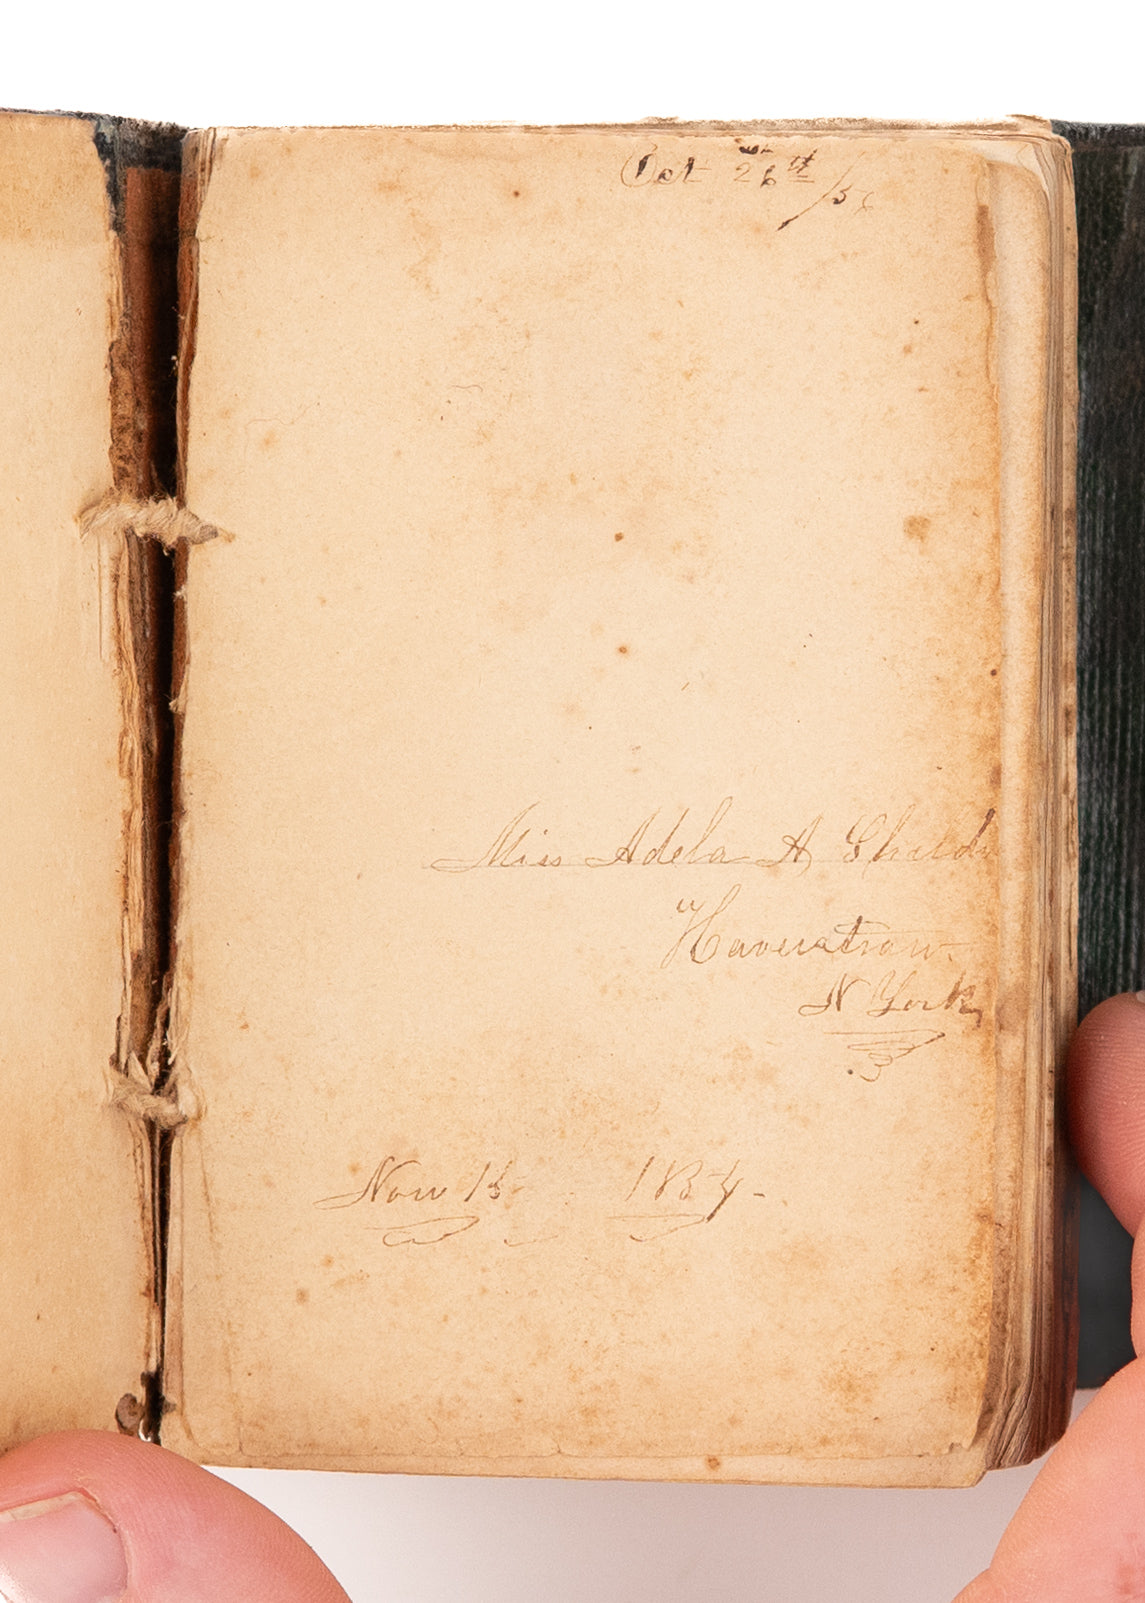 Oct 26th
Miss Adela A
Haverstraw
N York
Nov 15 1854